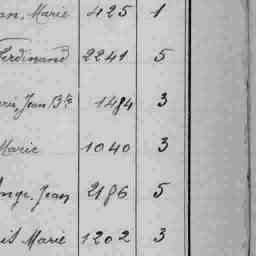 an, Marie 425 1
Ferdinand 2241 5
Jean Bte 1484 3
Marie 1040 3
Ange, Jean 2186 5
Marie 1202 3